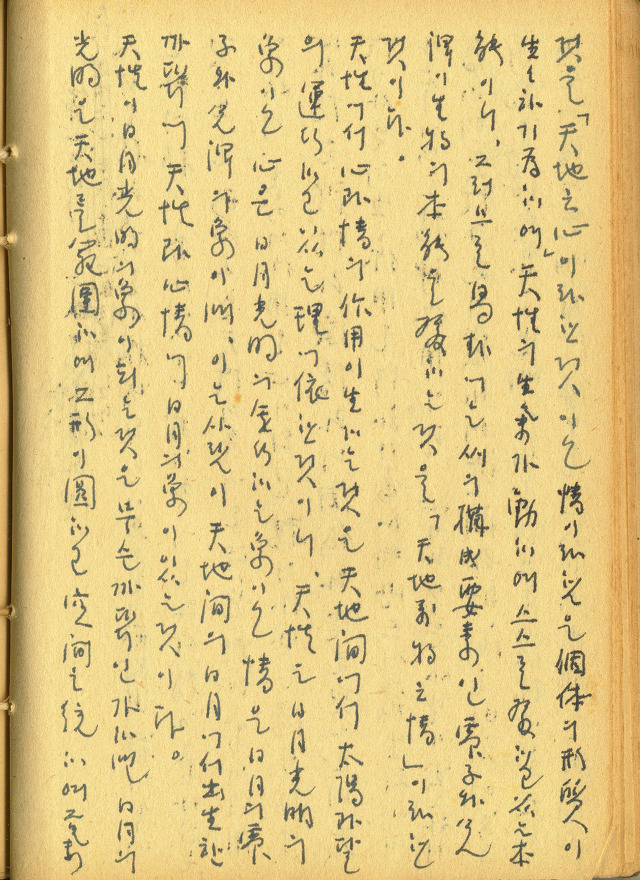 것은「天地之心」이라 한 것이오 情이라 함은 個体의 形質이
生生하기 爲하여 天性의 生氣가 動하여 스스로 發하고 있는 本
能이니, 그러므로 易卦에는 씨의 構成要素인 震子와 兌
渾이 生物의 本能을 發하는 것을「天地万物之情」이라 한
것이다.
天性에서 心과 情의 作用이 生하는 것은 天地間에서 太陽과 달
의 運行하고 있는 理에 依한 것이니, 天性은 日月光明의
象이오 心은 日月光明의 運行하는 象이오 情은 日月의 震
子와 兌渾의 象이며, 이는 사람이 天地間의 日月에서 出生한
까닭에 天性과 心情에 日月의 象이 있는 것이다.
天性이 日月光明의 象이 되는 것은 무슨 까닭인가 하면 日月의
光明은 天地를 範圍하여 그 形이 圓하고 空間을 統하여